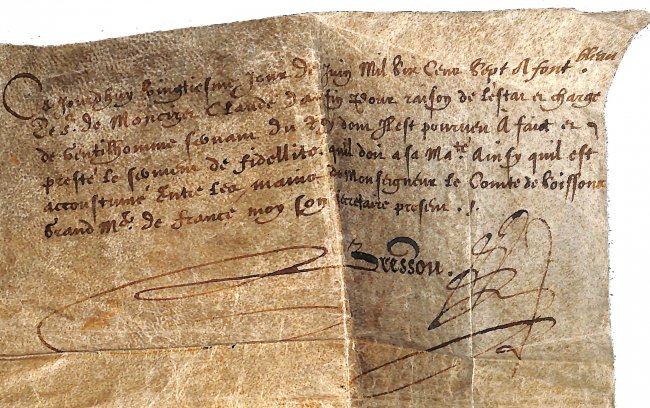 Ce Jourdhuy vingtiesme Jour de Juin Mil Six Cens Sept A font bleau
Le Sr. de Moncrrer Claude Dansy Pour raison de lestat et charge
de Gentilhomme servant du Roy dont Il est pourveu A faict et
presté le serment de fidellité quil doit a sa Ma.té Ainsy quil est
accoustumé Entre les mains de Monseigneur le Comte de Soissons
Grand M.e de france moy son secretaire present ./.
Bresson.